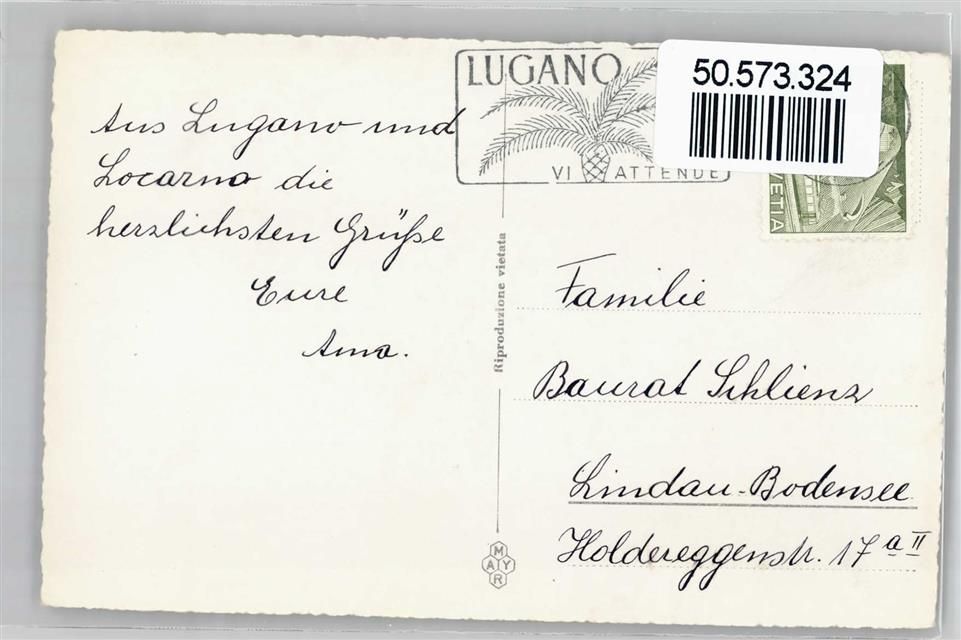 Aus Lugano und
Locarno die
herzlichsten Grüße
Eure
LUGANO
VI ATTENDE
50.573.324
HELVETIA
Riproduzione vietata
Familie
Baurat Schlienz
Lindau-Bodensee
Holdereggenstr. 17 a II
MAYR